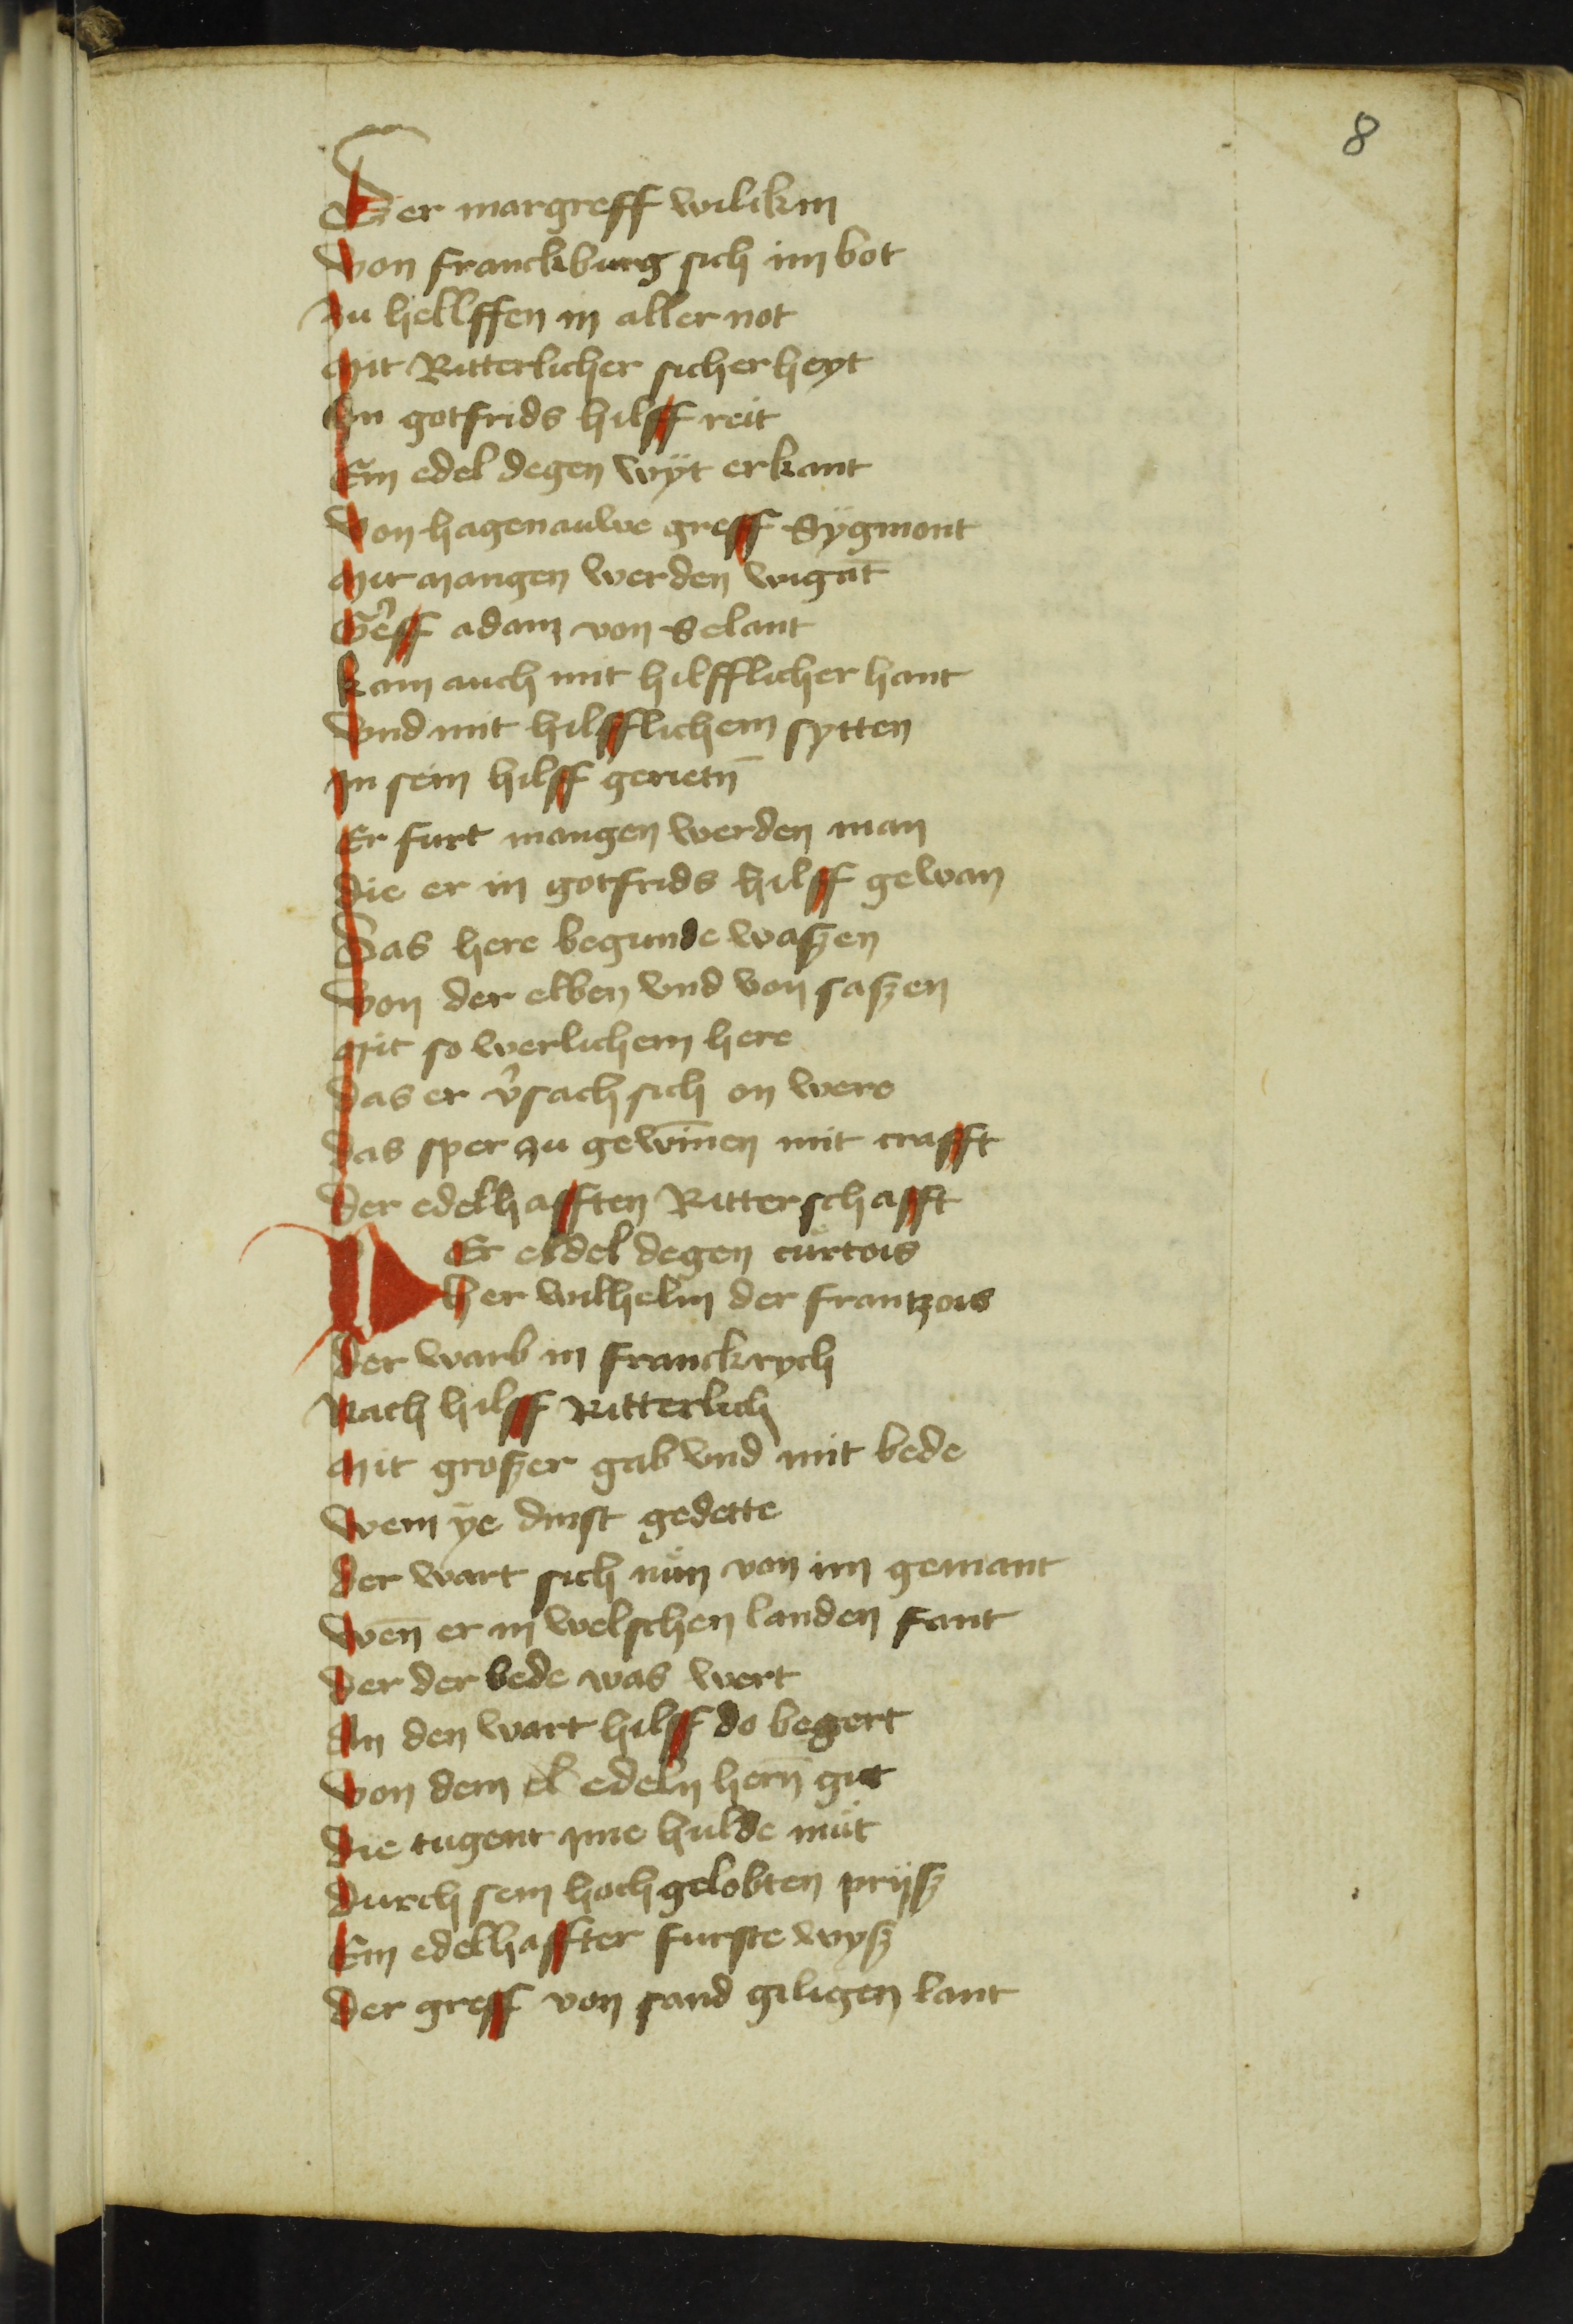 8
Der margreff wilikin
von franckburg sich im bot
zu hellffen in aller not
mit Ritterlicher sicherheyt
In gotfrids hilff reit
Ein edel degen wÿt erkant
von hagenauwe greff Sÿgmont
mit mangen werden wigāt
G᷑eff adam von Selant
kam auch mit hilfflicher hant
vnd mit hilfflichem sytten
In sein hilff gerietn̄
Er furt mangen werden man
die er in gotfrids hilff gewan
Das here begunde waßen
von der elben vnd von saßen
mit so werlichem here
das er v᷑sach sich on were
das sper zu gewīnen mit crafft
der edelhafften Ritterschafft
DEr eldel degen curtois
her wilhelm der frantzois
der warb in franckrych
Nach hilff Ritterlich
mit großer gab vnd mit bede
wem ÿe dinst gedette
der wart sich nůn von im gemant
wen̄ er in welschen landen fant
der der bede was wert
An den wart hilff do begert
von dem el edeln hern̄ gut
die tugent ime hulde můt
durch sein hoch gelobten prijß
Ein edelhaffter furste wyß
der greff von sand giligen lant